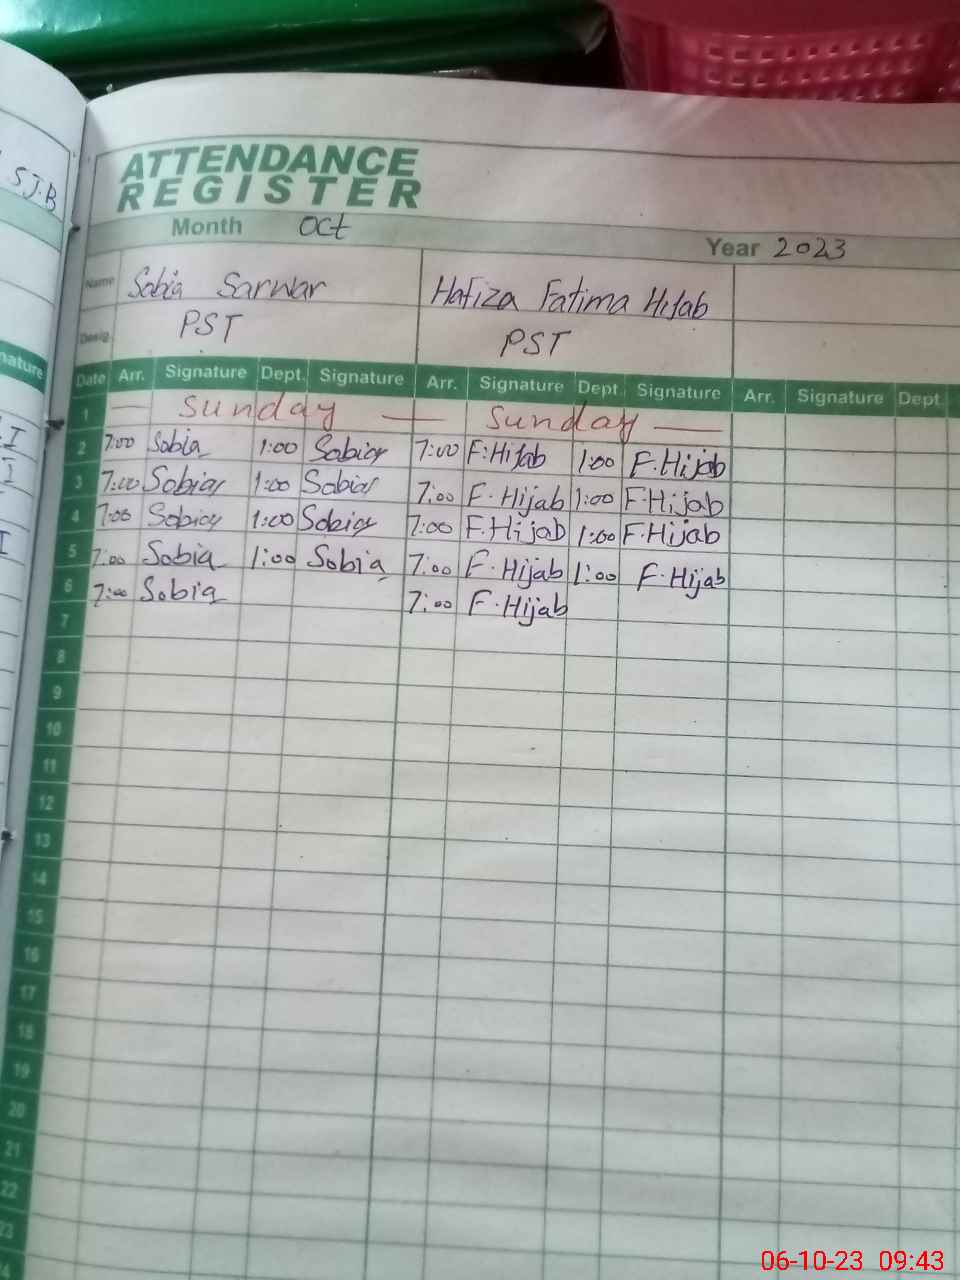 S.J.B
ATTENDANCE
REGISTER
Month Oct Year 2023
Name Sobia Sarwar Hafiza Fatima Hijab
Desig. PST PST
nature Date Arr. Signature Dept. Signature Arr. Signature Dept. Signature Arr. Signature Dept.
1 — Sunday — — Sunday —
2 7:00 Sobia 1:00 Sobia 7:00 F.Hijab 1:00 F.Hijab
3 7:00 Sobia 1:00 Sobia 7:00 F.Hijab 1:00 F.Hijab
4 7:00 Sobia 1:00 Sobia 7:00 F.Hijab 1:00 F.Hijab
5 7:00 Sobia 1:00 Sobia 7:00 F.Hijab 1:00 F.Hijab
6 7:00 Sobia 7:00 F.Hijab
7
8
9
10
11
12
13
14
15
16
17
18
19
20
21
22
23
06-10-23 09:43